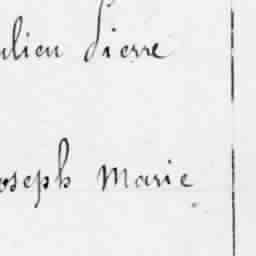 ulien Pierre
oseph Marie